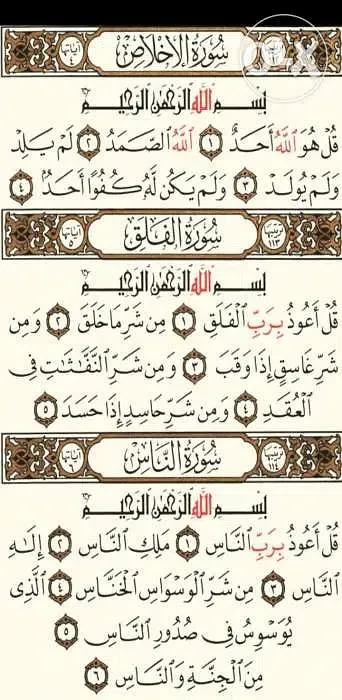 سُورَةُ الإِخْلَاصِ آيَاتُهَا ٤
بِسْمِ اللَّهِ الرَّحْمَٰنِ الرَّحِيمِ
قُلْ هُوَ اللَّهُ أَحَدٌ ١ اللَّهُ الصَّمَدُ ٢ لَمْ يَلِدْ
وَلَمْ يُولَدْ ٣ وَلَمْ يَكُن لَّهُ كُفُوًا أَحَدٌ ٤
ترتيبها ١١٣ سُورَةُ الفَلَقِ آيَاتُهَا ٥
بِسْمِ اللَّهِ الرَّحْمَٰنِ الرَّحِيمِ
قُلْ أَعُوذُ بِرَبِّ الْفَلَقِ ١ مِن شَرِّ مَا خَلَقَ ٢ وَمِن
شَرِّ غَاسِقٍ إِذَا وَقَبَ ٣ وَمِن شَرِّ النَّفَّاثَاتِ فِي
الْعُقَدِ ٤ وَمِن شَرِّ حَاسِدٍ إِذَا حَسَدَ ٥
ترتيبها ١١٤ سُورَةُ النَّاسِ آيَاتُهَا ٦
بِسْمِ اللَّهِ الرَّحْمَٰنِ الرَّحِيمِ
قُلْ أَعُوذُ بِرَبِّ النَّاسِ ١ مَلِكِ النَّاسِ ٢ إِلَٰهِ
النَّاسِ ٣ مِن شَرِّ الْوَسْوَاسِ الْخَنَّاسِ ٤ الَّذِي
يُوَسْوِسُ فِي صُدُورِ النَّاسِ ٥
مِنَ الْجِنَّةِ وَالنَّاسِ ٦